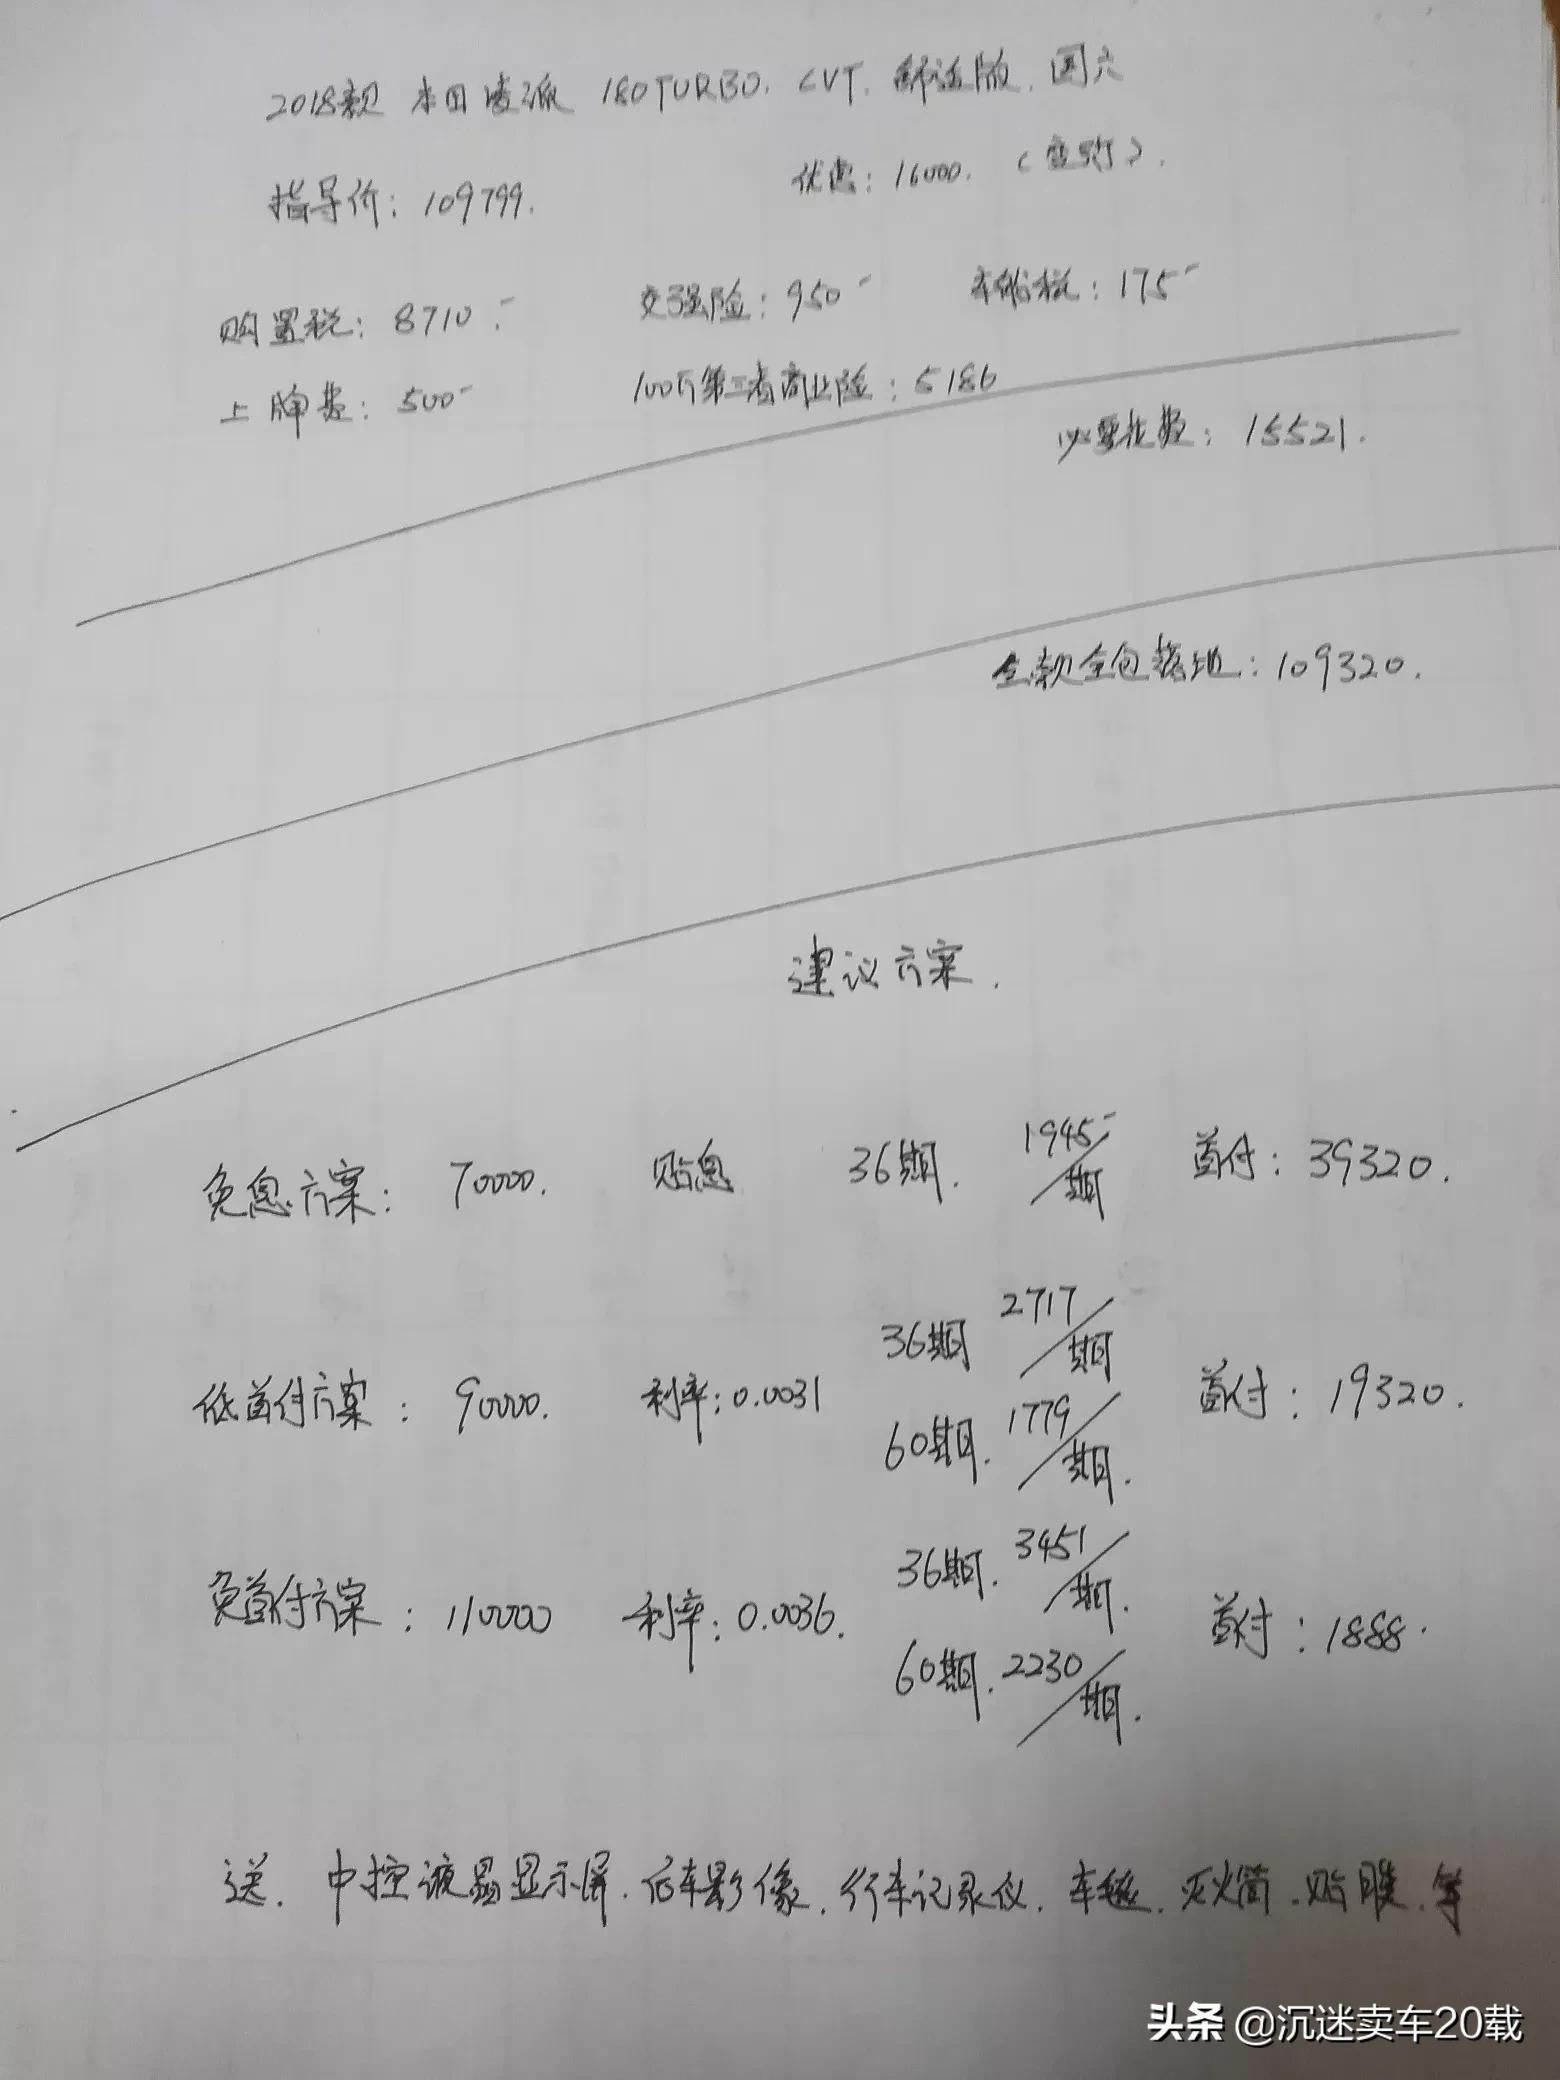 2018款 本田凌派 180TURBO. CVT. 舒适版. 国六
指导价: 109799. 优惠: 16000. (直购).
购置税: 8710. 交强险: 950 车船税: 175
上牌费: 500 100万第三者商业险: 5186
必要花费: 15521.
全款全包落地: 109320.
建议方案.
免息方案: 70000. 贴息 36期. 1945/期 首付: 39320.
低首付方案: 90000. 利率: 0.0031 36期 2717/期 首付: 19320.
60期. 1779/期.
免首付方案: 110000 利率: 0.0036. 36期. 3451/期. 首付: 1888.
60期. 2230/期.
送. 中控液晶显示屏. 后车影像. 行车记录仪. 车毯. 灭火筒. 贴膜. 等
头条 @沉迷卖车20载